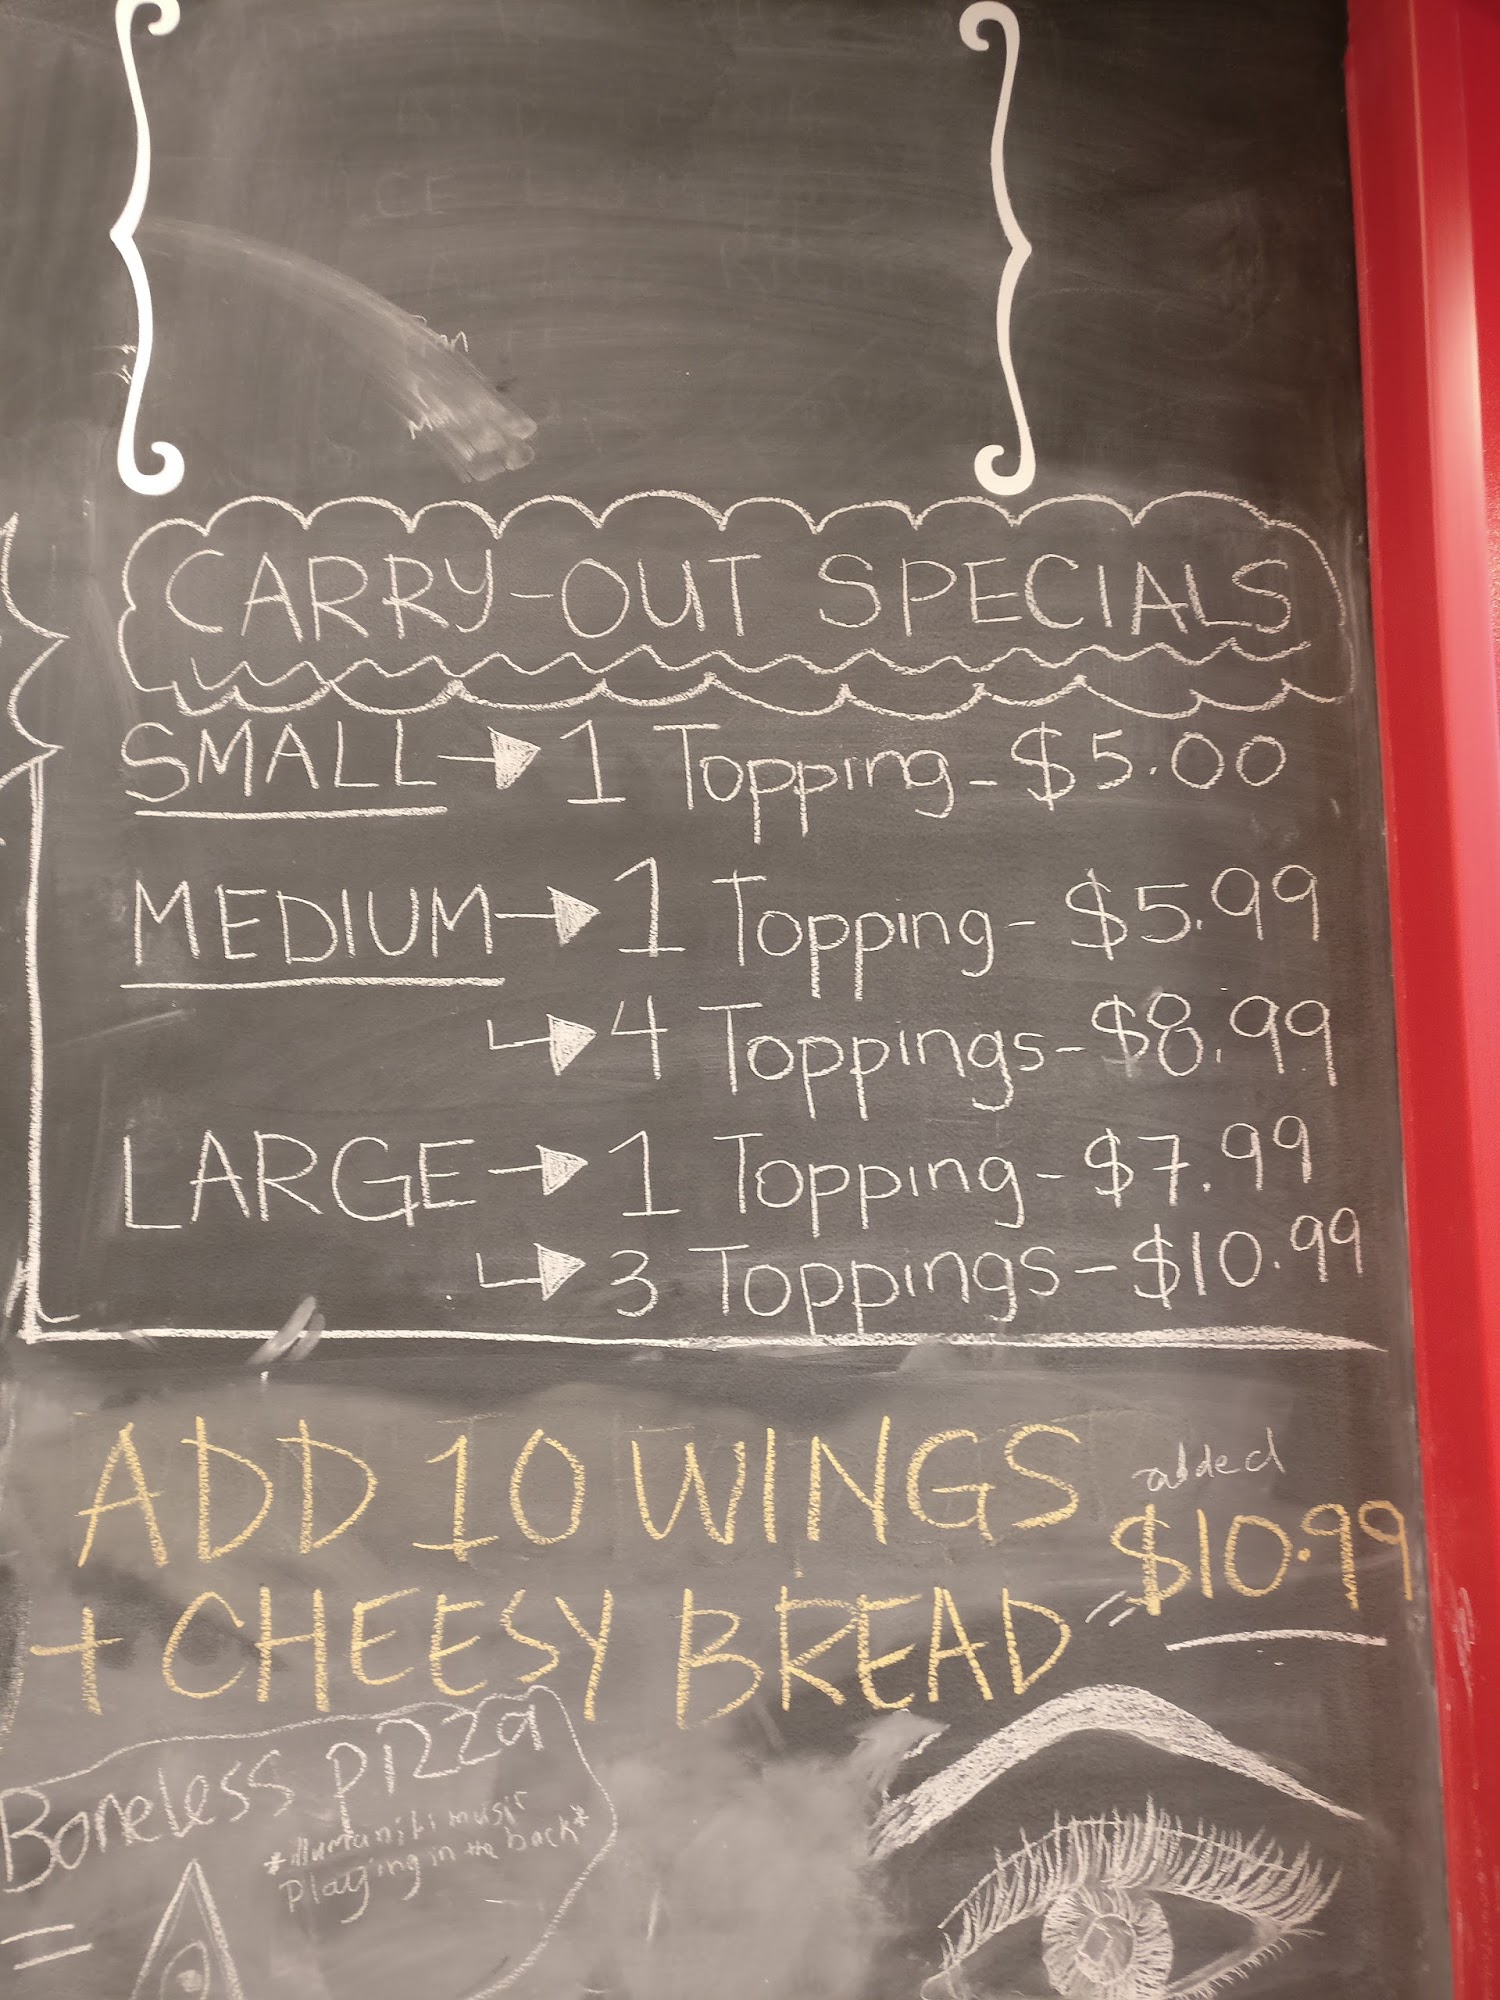 CARRY-OUT SPECIALS
SMALL → 1 Topping - $5.00
MEDIUM → 1 Topping - $5.99
↳ 4 Toppings - $8.99
LARGE → 1 Topping - $7.99
↳ 3 Toppings - $10.99
ADD 10 WINGS added
+ CHEESY BREAD = $10.99
Boneless pizza
*illumaniti music
playing in the back*
=